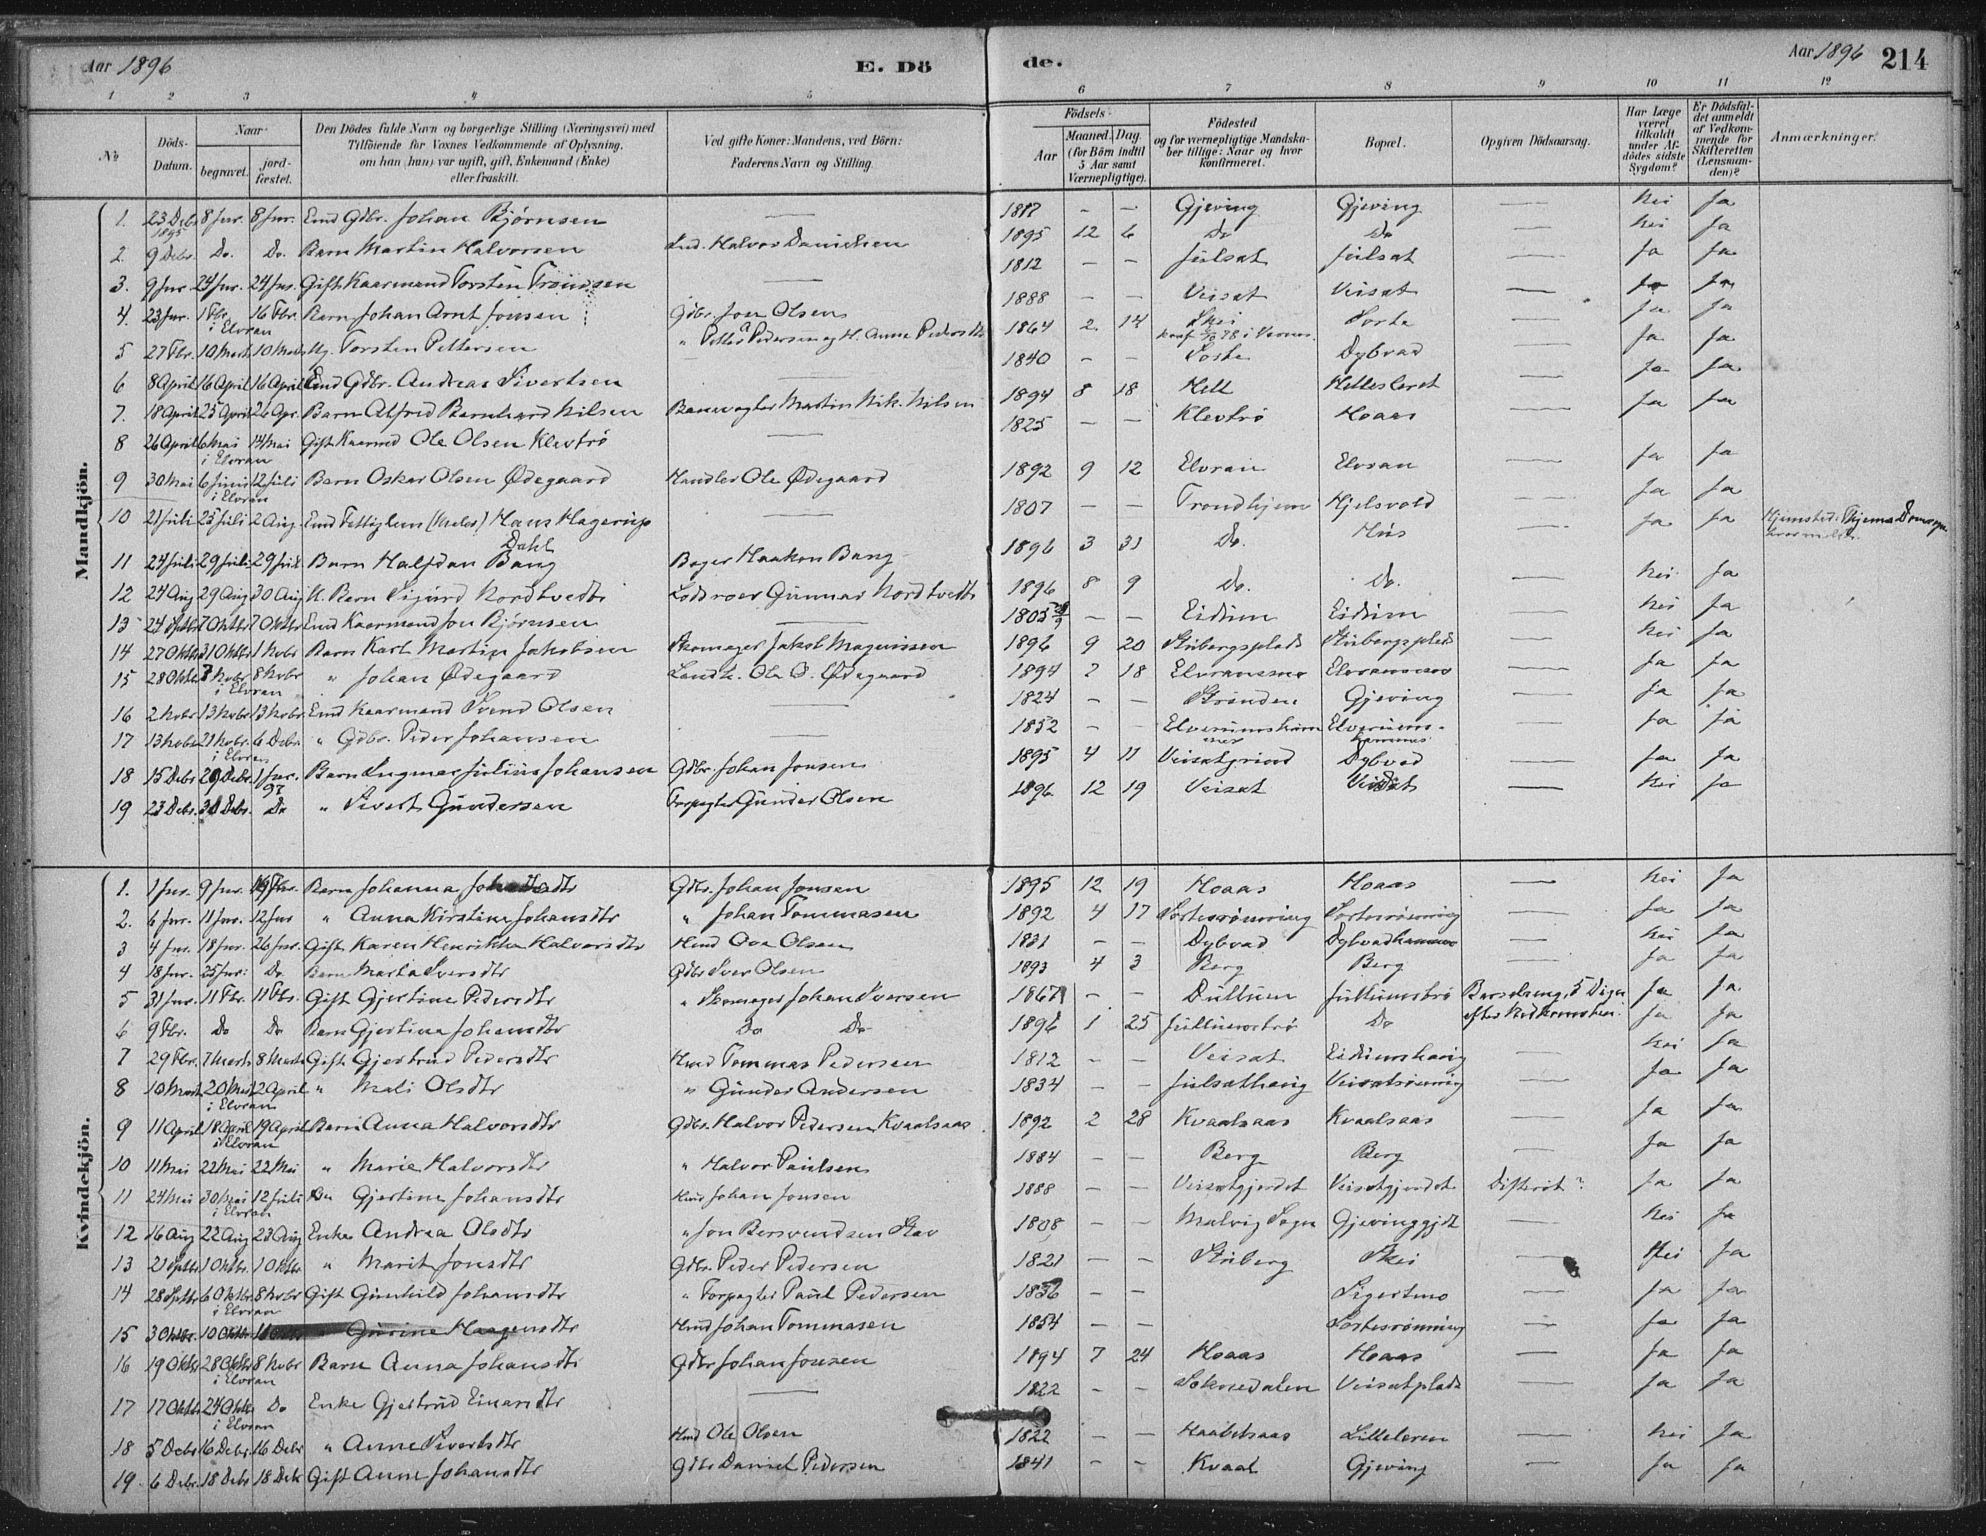 Aar 1896 E. Dö de. Aar 1896 214
1 2 3 4 5 6 7 8 9 10 11 12
No
Döds-Datum.
Naar
begravet. jordfæstet.
Den Dödes fulde Navn og borgerlige Stilling (Næringsvei) med Tilföiende for Voxnes Vedkommende af Oplysning, om han (hun) var ugift, gift, Enkemand (Enke) eller fraskilt.
Ved gifte Koner: Mandens, ved Börn: Faderens Navn og Stilling.
Födsels-
Aar Maaned. Dag.
(for Börn indtil 5 Aar samt Værnepligtige).
Födested og for værnepligtige Mandskaber tillige: Naar og hvor konfirmeret.
Bopæl.
Opgiven Dödsaarsag.
Har Læge været tilkaldt under Afdödes sidste Sygdom?
Er Dödsfaldet anmeldt af Vedkommende for Skifteretten (Lensmanden)?
Anmærkninger.
Mandkjön.
1. 23 Debr 1895 8 Jnr. 8 Jnr. Emd Gdbr. Johan Bjørnsen — 1817 - - Gjeving Gjeving — Nei Ja
2. 9 Debr. Do. Do. Barn Martin Halvorsen Ind. Halvor Danielsen 1895 12 6 Do Do — Nei Ja
3. 9 Jnr 24 Jnr. 24 Jnr. Gift Kaarmand Torsten Trondsen — 1812 - - Julsat Julsat — Ja Ja
4. 23 Jnr. 1 Fbr. i Elvran 16 Fbr. Barn Johan Arnt Jonsen Gdbr. Jon Olsen 1888 - - Veisat Veisat — Ja Ja
5 27 Fbr. 10 Marts 10 Marts Ug. Torsten Pettersen " Petter Pedersen og H. Anne Pedersdtr 1864 2 14 Skei konf. 78 i Vernes. Sorte — Ja Ja
6 8 April 16 April 16 April Emd Gdbr. Andreas Sivertsen — 1840 - - Sorte Dybvad — Ja Ja
7. 18 April 25 April 26 Apr. Barn Alfred Bernhard Nilsen Banevogter Martin Nik. Nilsen 1894 8 18 Hell Hellesleret — Ja Ja
8 26 April 6 Mai i Elvran 14 Mai Gift Kaarmd Ole Olsen Klevtrø — 1825 - - Klevtrø Hoaas — Ja Ja
9 30 Mai 6 Juni i Elvran 12 Juli Barn Oskar Olsen Ødegaard Handler Ole Ødegaard 1892 9 12 Elvran Elvran — Ja Ja
10 21 Juli 25 Juli 2 Aug. Emd Fattiglem Hans Hagerup Dahl — 1807 - - Trondhjem Hjelsvold — Ja Ja
11 24 Juli 29 Juli 29 Juli Barn Halfdan Bang Bager Haakon Bang 1896 3 31 Do. Hus — Ja Ja Hjemsted: Thjems Domsogn
12 24 Aug 29 Aug 30 Aug U. Barn Sigurd Nordtvedt Gunnar Nordtvedt 1896 8 9 Do. Do. — Nei Ja
13 24 Septbr 7 Oktbr 7 Oktbr Emd Kaarmand Jon Bjørnsen — 1805 - - Eidum Eidum — Nei Ja
14 27 Oktbr 31 Oktbr 1 Nvbr Barn Karl Martin Jakobsen Skomager Jakob Magnussen 1896 9 20 Stubergsplads Stubergsplads — Nei Ja
15 28 Oktbr 7 Nvbr i Elvran 8 Nvbr " Johan Ødegaard Landh. Ole O. Ødegaard 1894 2 18 Elvransmo Elvransmo — Ja Ja
16 2 Nvbr 13 Nvbr 13 Nvbr. Emd Kaarmand Svend Olsen — 1824 - - Strinden Gjeving — Ja Ja
17 13 Nvbr 21 Nvbr. i Elvran 6 Debr. " Gdbr. Peder Johansen — 1852 - - — Ja Ja
18 15 Debr 29 Debr. 1 Jnr. 97 Barn Ingmar Julius Johansen Gdbr. Johan Jonsen 1895 4 11 Veisatgrind Dybvad — Ja Ja
19 23 Debr. 30 Debr. Do " Sivert Gundersen Forpagter Gunder Olsen 1896 12 19 Veisat Veisat — Nei Ja
Kvindekjön.
1. 1 Jnr. 9 Jnr. Barn Johanna Johansdtr Gdbr. Johan Jonsen 1895 12 19 Hoaas Hoaas — Nei Ja
2. 6 Jnr. 11 Jnr. 12 Jnr " Anna Kirstine Johansdtr " Johan Tommasen 1892 4 17 Sorterønning Sorterønning — Ja Ja
3 4 Jnr. 18 Jnr. 26 Jnr. Gift Karen Henrikke Halvorsdtr Hmd Ove Olsen 1831 - - Dybvad Dybvadhammer — Nei Ja
4 18 Jnr. 25 Jnr. Do. Barn Marta Iversdtr Gdbr Iver Olsen 1893 4 3 Berg Berg — Ja Ja
5 31 Jnr. 11 Fbr. 11 Fbr. Gift Gjertine Pedersdtr " Skomager Johan Iversen 1867 - - Dullum Jullumstrø Barselseng, 5 Dage efter Nedkomsten. Ja Ja
6 9 Fbr. Do Do Barn Gjertina Johansdtr Do Do 1896 1 25 Jullumstrø Do — Ja Ja
7 29 Fbr. 7 Marts 8 Marts Gift Gjertrud Pedersdtr Hmd Tommas Pedersen 1812 - - Veisat Eidumshaug — Nei Ja
8 10 Marts 20 Marts i Elvran 12 April " Mali Olsdtr " Gunder Andersen 1834 - - Julsathaug Veisatrønning — Ja Ja
9 11 April 18 April i Elvran 19 April Barn Anna Halvorsdtr Gdbr. Halvor Pedersen Kvaalsaas 1892 2 28 Kvaalsaas Kvaalsaas — Ja Ja
10 11 Mai 22 Mai 22 Mai " Marie Halvorsdtr " Halvor Paulsen 1884 - - Berg Berg — Ja Ja
11 24 Mai 30 Mai i Elvran 12 Juli Do Gjertine Johansdtr Hmd Johan Jonsen 1888 - - Veisatgjerdet Veisatgjerdet Difterit? Ja Ja
12 16 Aug 22 Aug 23 Aug Enke Andrea Olsdtr " Jon Bersvendsen Stav 1808 - - Malvig Sogn Gjevinggjdt — Nei Ja
13 21 Septbr 1 Oktbr. 1 Oktbr " Marit Jonsdtr Gdbr. Peder Pedersen 1821 - - Stuberg Skei — Nei Ja
14 28 Septbr 6 Oktbr i Elvran 8 Nvbr Gift Gunhild Johansdtr " Forpagter Paul Pedersen 1836 - - Sigertmo — Ja Ja
15 3 Oktbr. 10 Oktbr " Gurine Haagensdtr Hmd Johan Tommasen 1854 - - Sorterønning — Ja Ja
16 19 Oktbr 28 Oktbr i Elvran 8 Nvbr Barn Anna Johansdtr Gdbr Johan Jonsen 1894 7 24 Hoaas Hoaas — Ja Ja
17 17 Oktbr 24 Oktbr i Elvran Do Enke Gjertrud Einarsdtr — 1822 - - Veisatplads — Ja Ja
18 5 Debr 16 Debr. 16 Debr " Anne Sivertsdtr Hmd Ole Olsen 1822 - - Haabetsaas Lilleleren — Nei Ja
19. 6 Debr. 18 Debr 18 Debr Gift Anne Johansdtr Gdbr Daniel Pedersen 1841 - - Kvaal Gjeving — Ja Ja